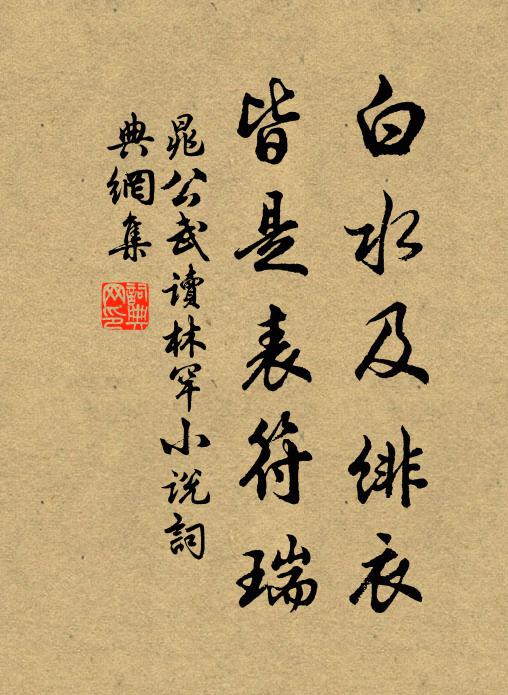 白水及緋衣
皆是表符瑞
晁公武讀林罕小说詞
典網集
詞典網印